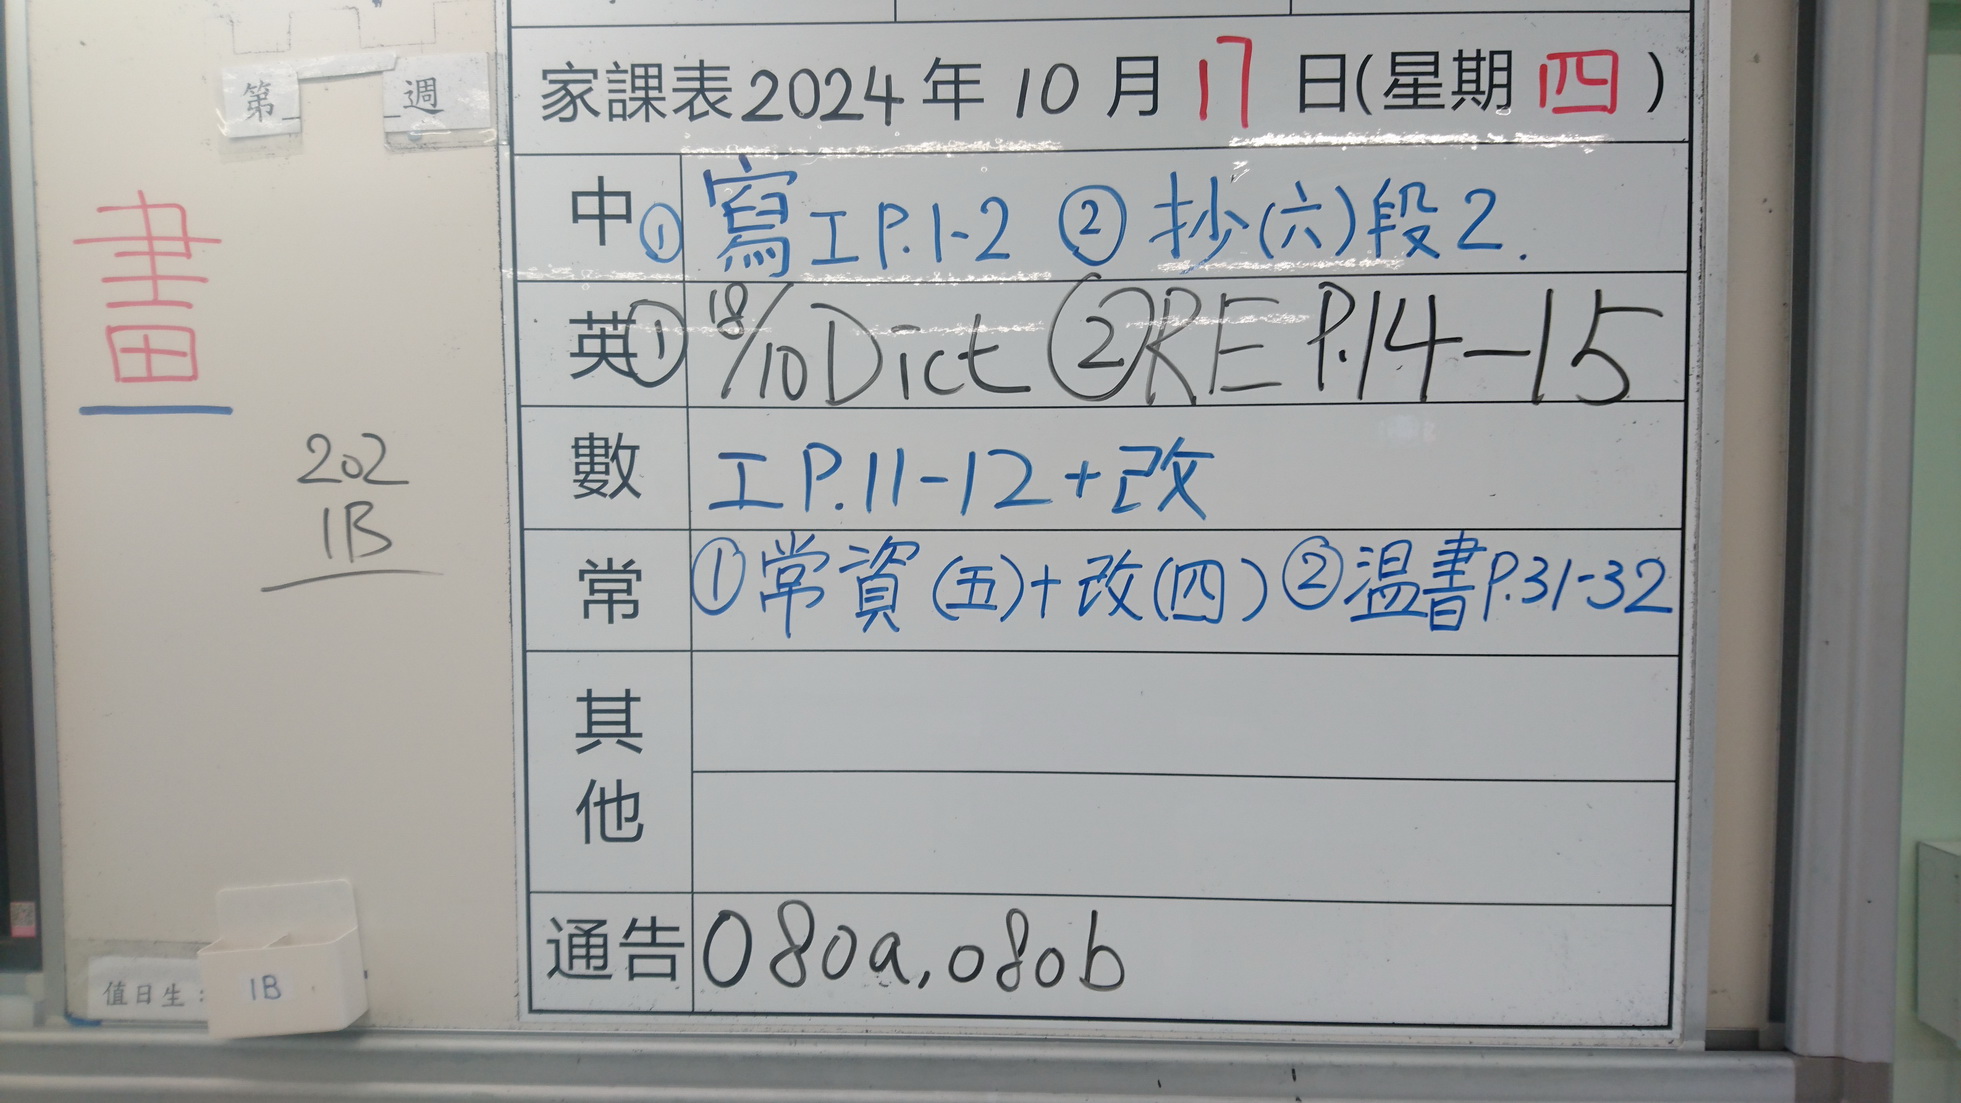 第_ _週
畫
202
1B
值日生：
1B
家課表2024年10月17日(星期四)
中 ① 寫工P.1-2 ② 抄(六)段2.
英 ① 18/10 Dict ② RE P.14-15
數 工P.11-12+改
常 ①常資(五)+改(四) ②温書P.31-32
其他
通告 080a,080b